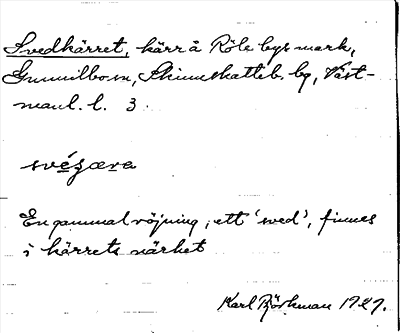 Svedkärret, kärr å Röle bys mark,
Gunnilbo sn, Skinnskatteb. bg, Väst-
manl. l. 3.
svéʒæra
En gammal röjning, ett 'sved', finnes
i kärrets närhet
Karl Björkman 1927.